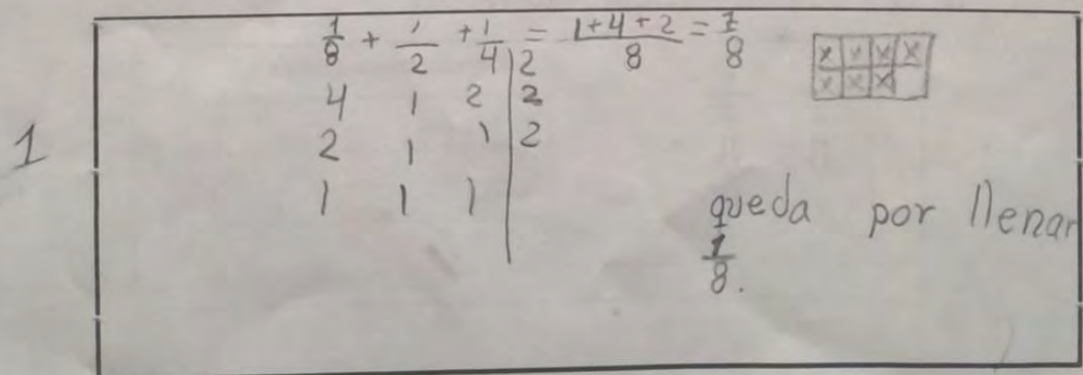 1
1/8 + 1/2 + 1/4 = (1+4+2)/8 = 7/8
2
4 1 2 2
2 1 1 2
1 1 1
x x x x
x x x
queda por llenar
1/8.